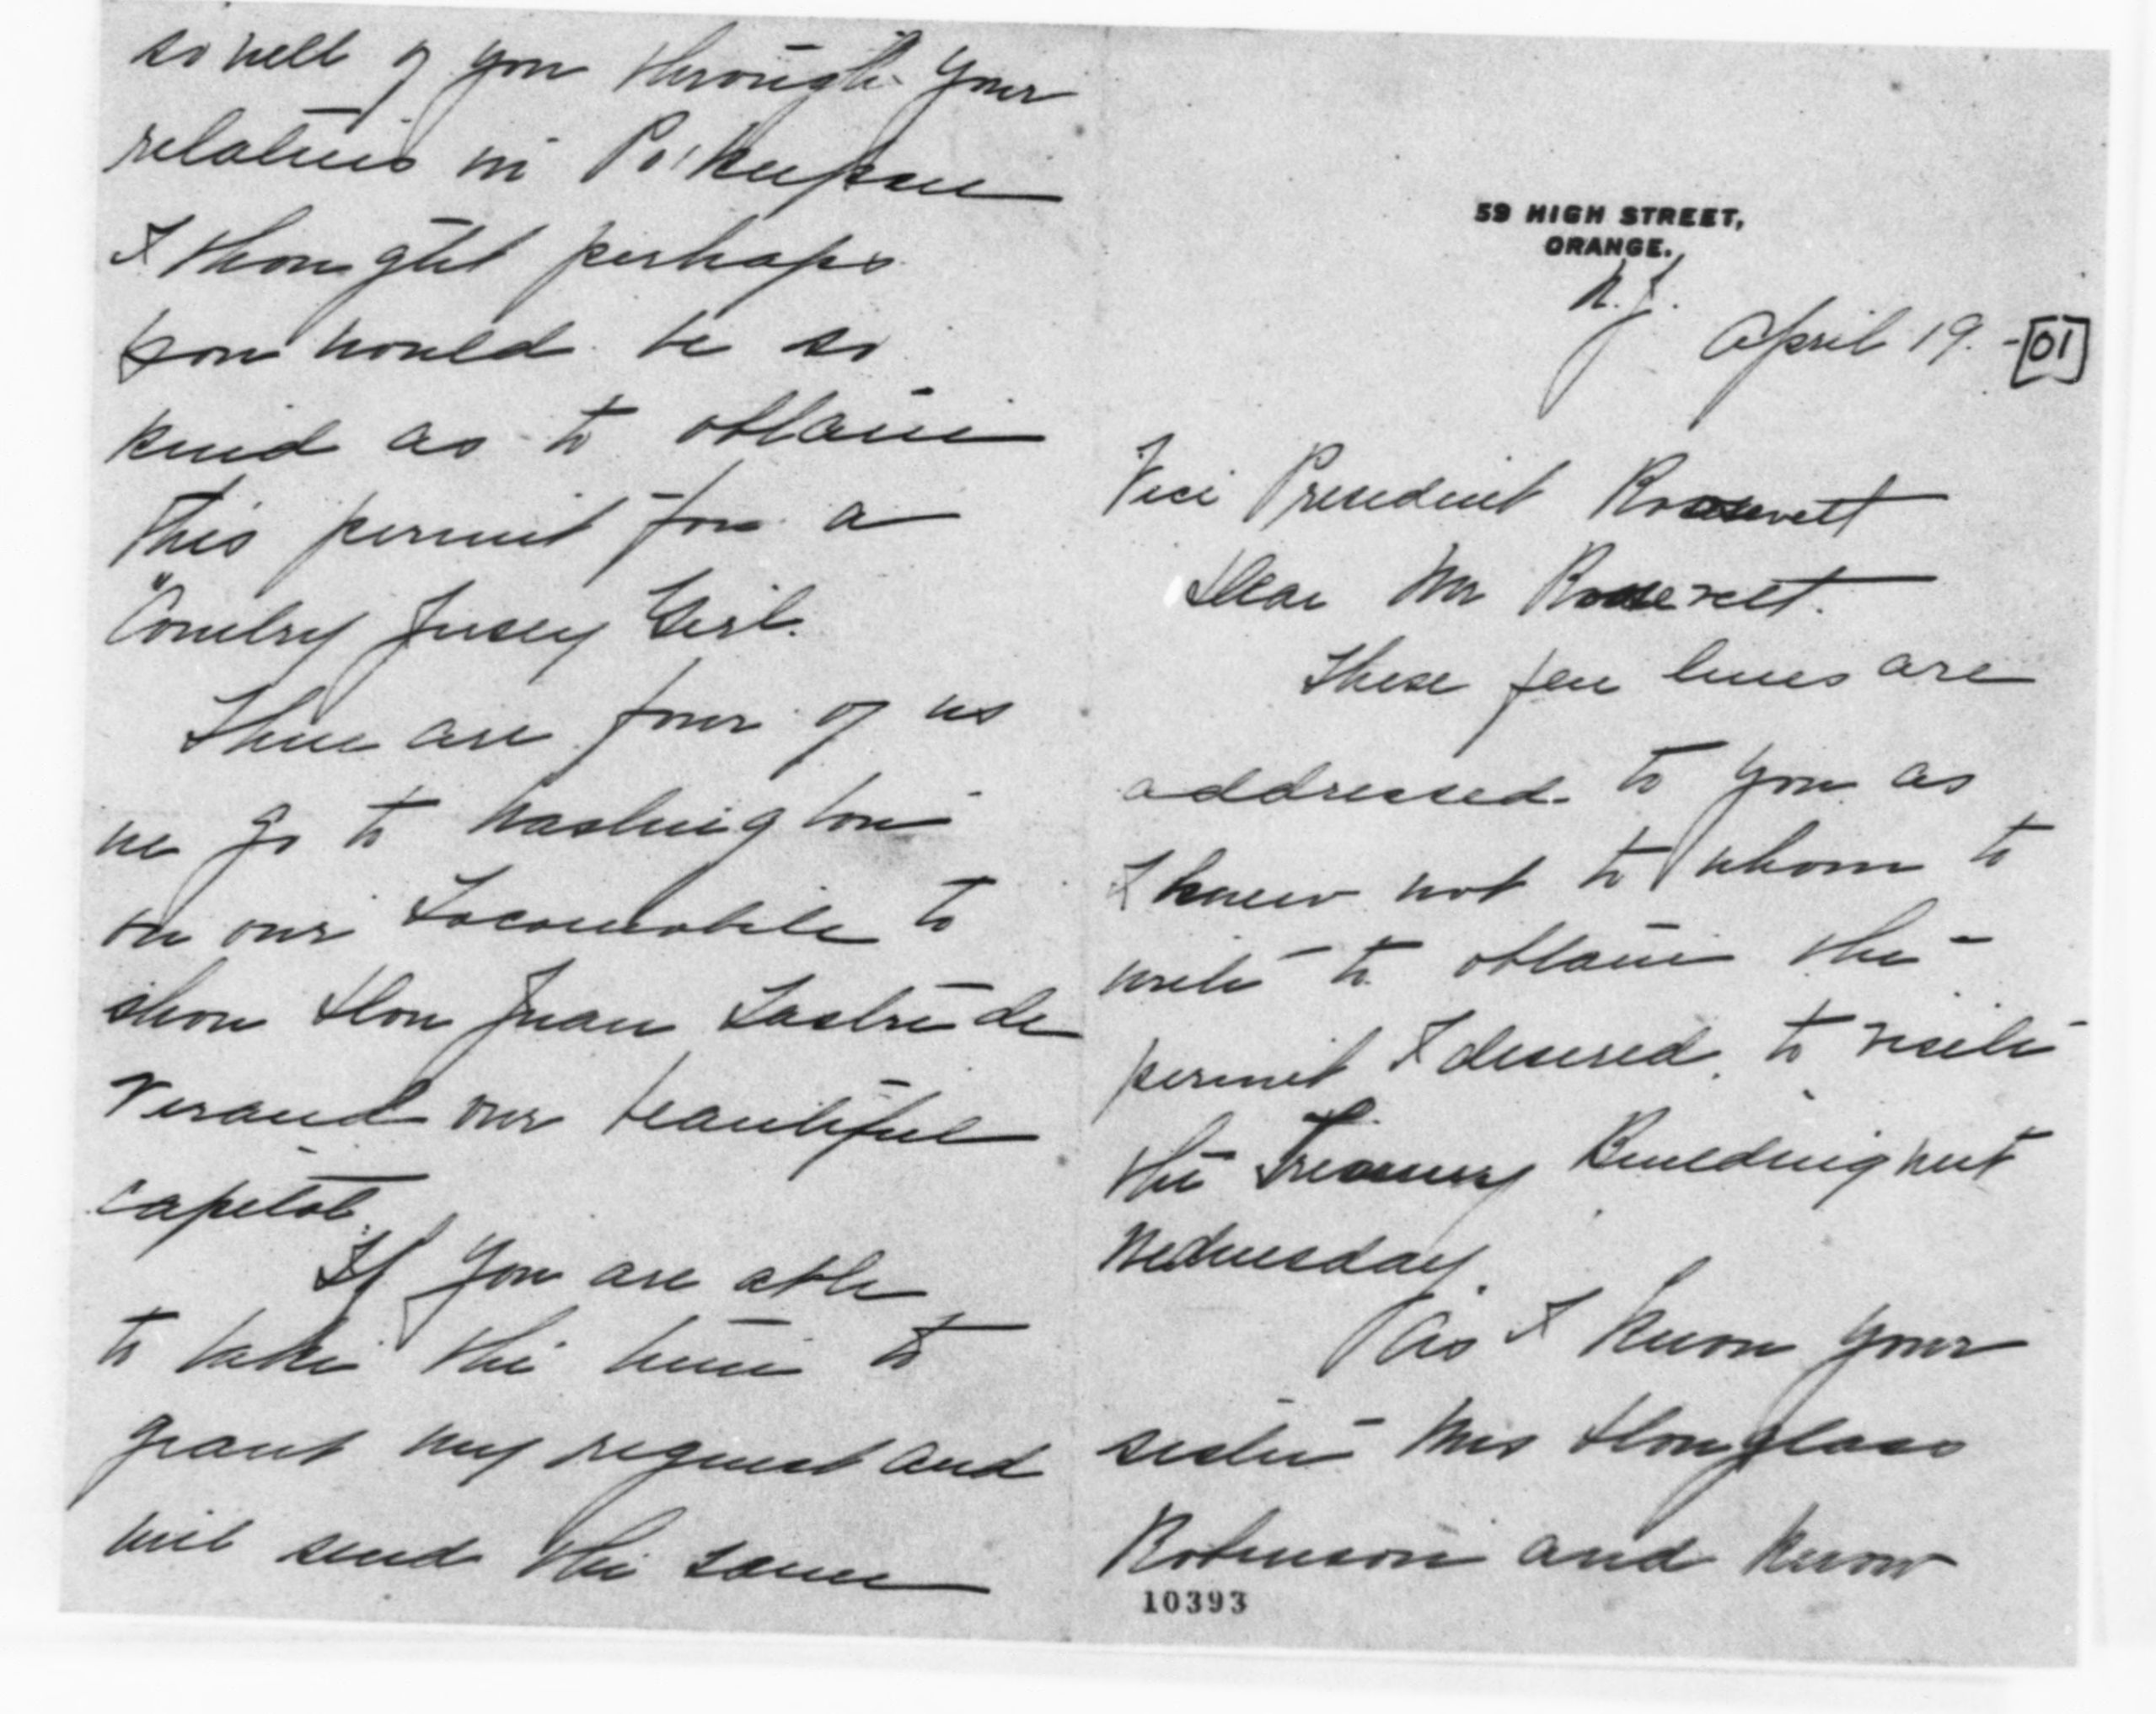 59 HIGH STREET,
ORANGE.
N.J.
April 19. -[01]
Vice President Roosevelt
Dear Mr Roosevelt.
These few lines are
addressed to you as
I knew not to whom to
write to obtain the
permit I desired to visit
the Treasury Building next
Wednesday.
As I know your
sister Mrs Douglass
Robinson and know
10393
so well of you through your
relatives in Po'keepsie
I thought perhaps
you would be so
kind as to obtain
this permit for a
"Country Jersey Girl.
There are four of us
we go to Washington
on our Locomobile to
show Don Juan Lastre de
our beautiful
Capitol.
If you are able
to take the time to
grant my request and
will send the same